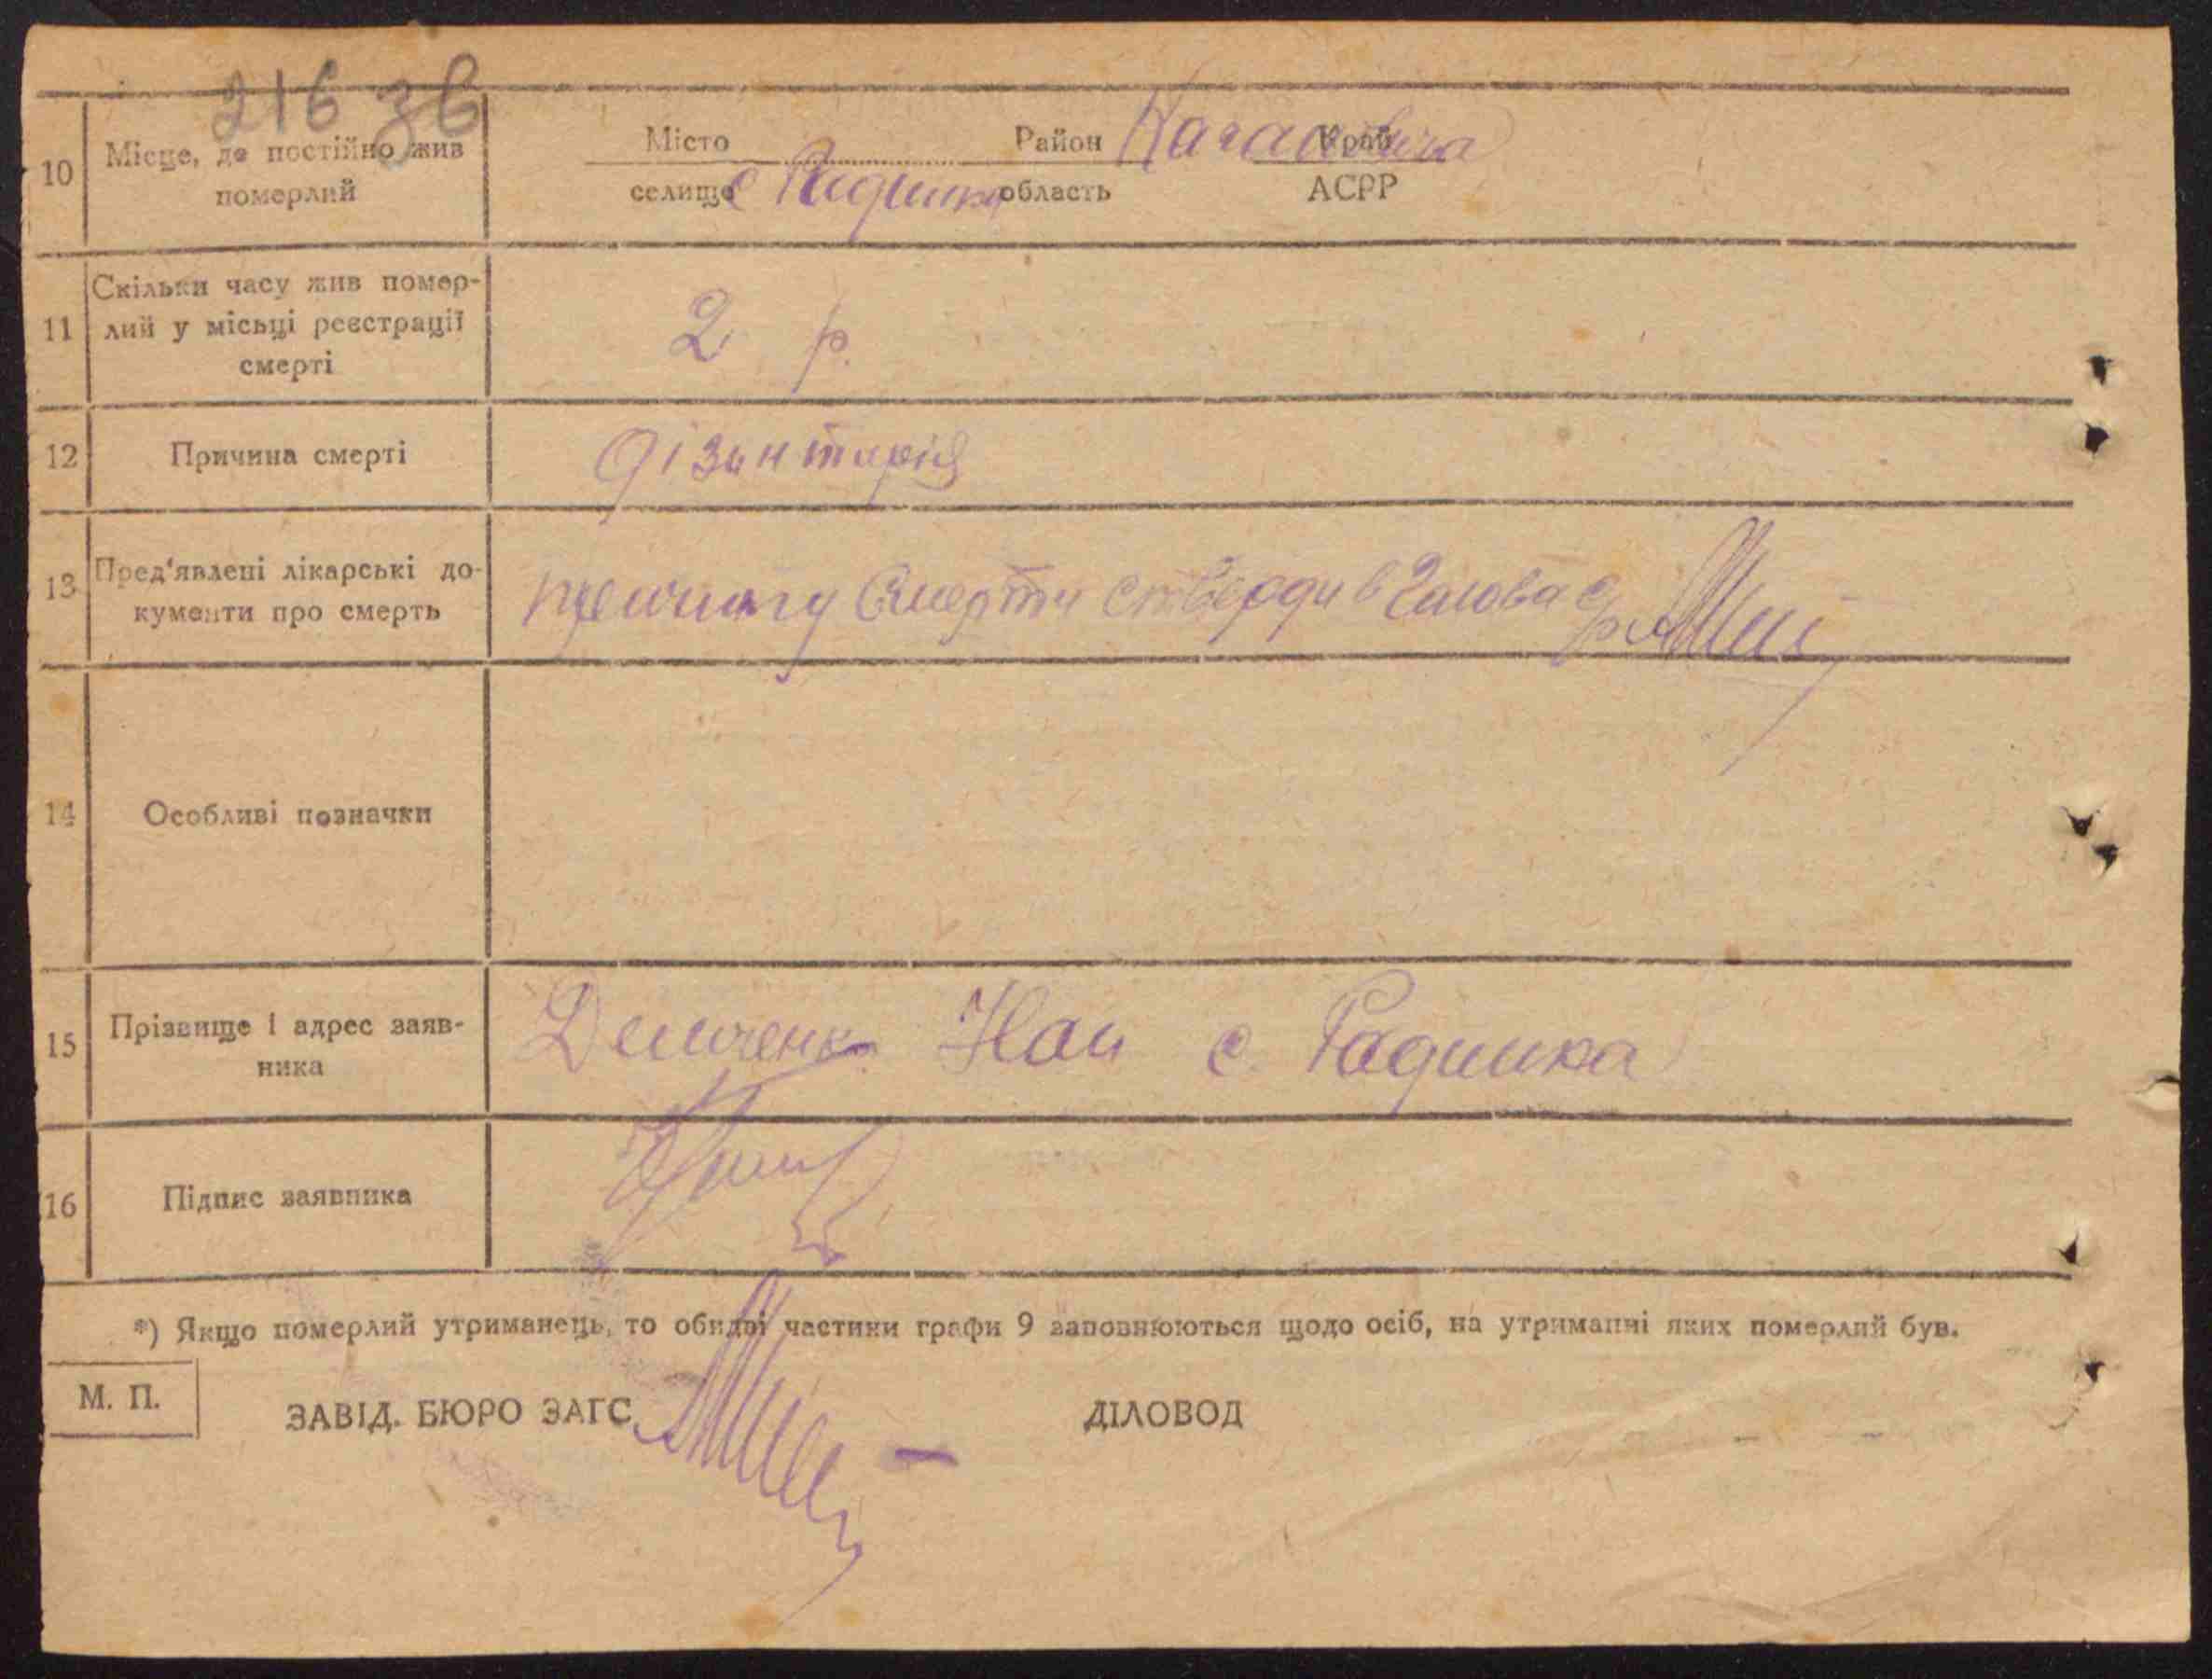 216 зв
10 Місце, де постійно жив померлий
Місто Район Кагановича Край
селище с Радинка область АСРР
11 Скільки часу жив помер-
лий у місьці реєстрації
смерті
2 р.
12 Причина смерті
дізинтирія
13 Пред'явлені лікарські до-
кументи про смерть
смерти ствердив Голова с/р
14 Особливі позначки
15 Прізвище і адрес заяв-
ника
Демченко с. Радинка
16 Підпис заявника
*) Якщо померлий утриманець, то обидві частини графи 9 заповнюються щодо осіб, на утриманні яких померлий був.
М. П.
ЗАВІД. БЮРО ЗАГС ДІЛОВОД